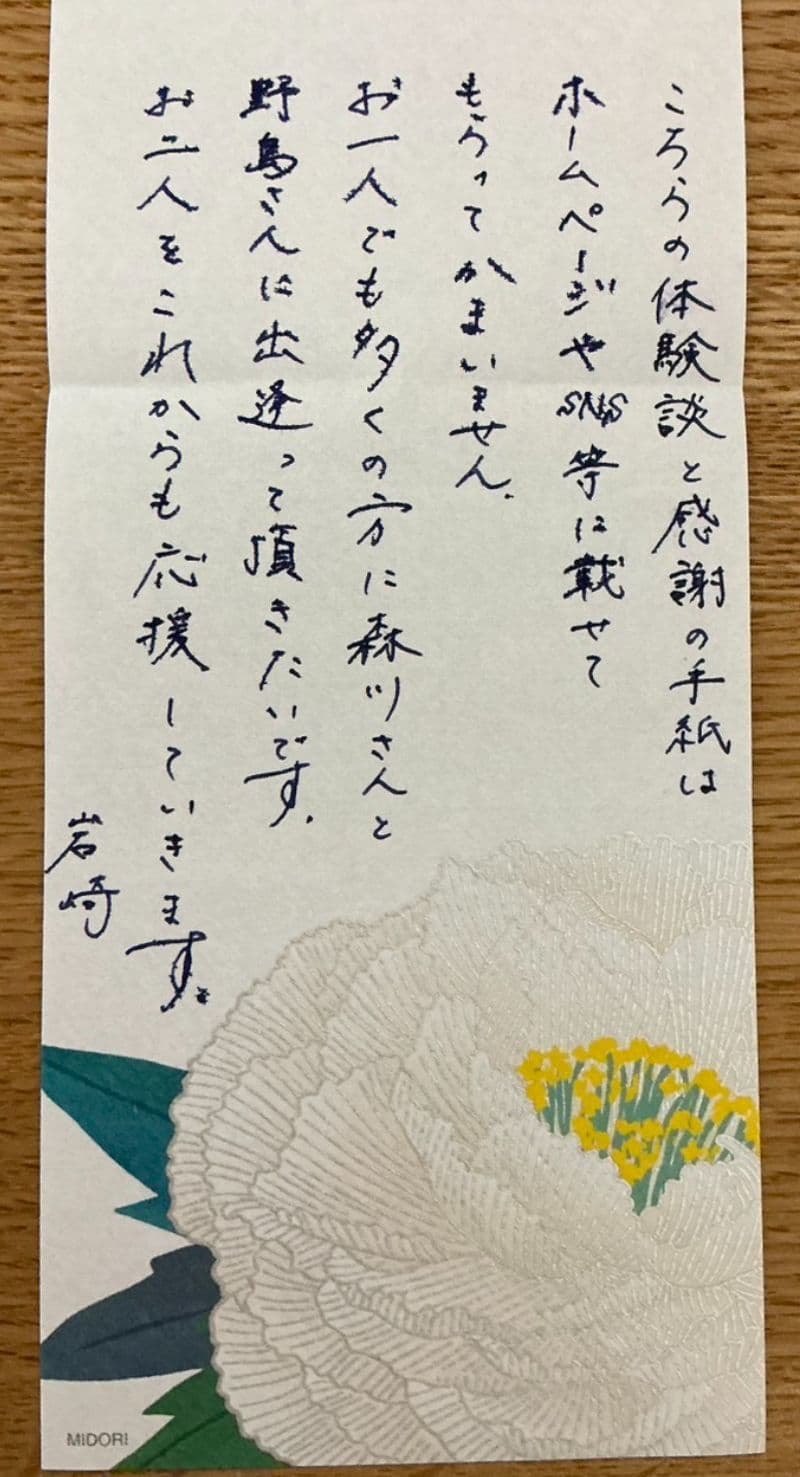 こちらの体験談と感謝の手紙は
ホームページやSNS等に載せて
もらってかまいません.
お一人でも多くの方に森川さんと
野島さんに出逢って頂きたいです.
お二人をこれからも応援していきます。
岩崎
MIDORI